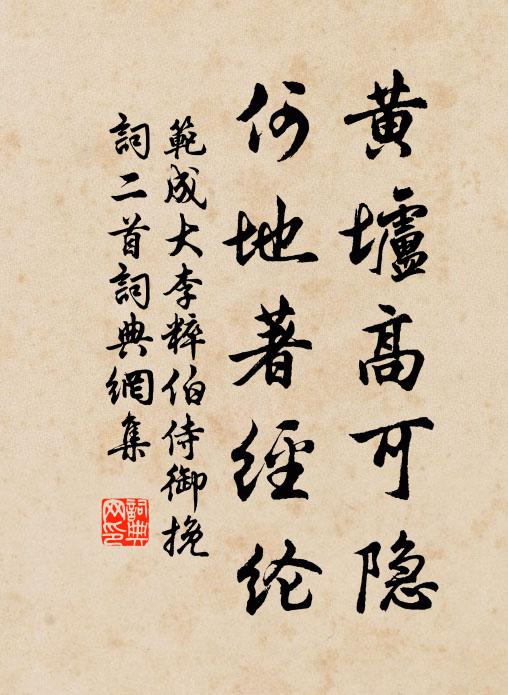 黄壚高可隐
何地著經纶
範成大李粹伯侍御挽
詞二首詞典網集
詞典
网印